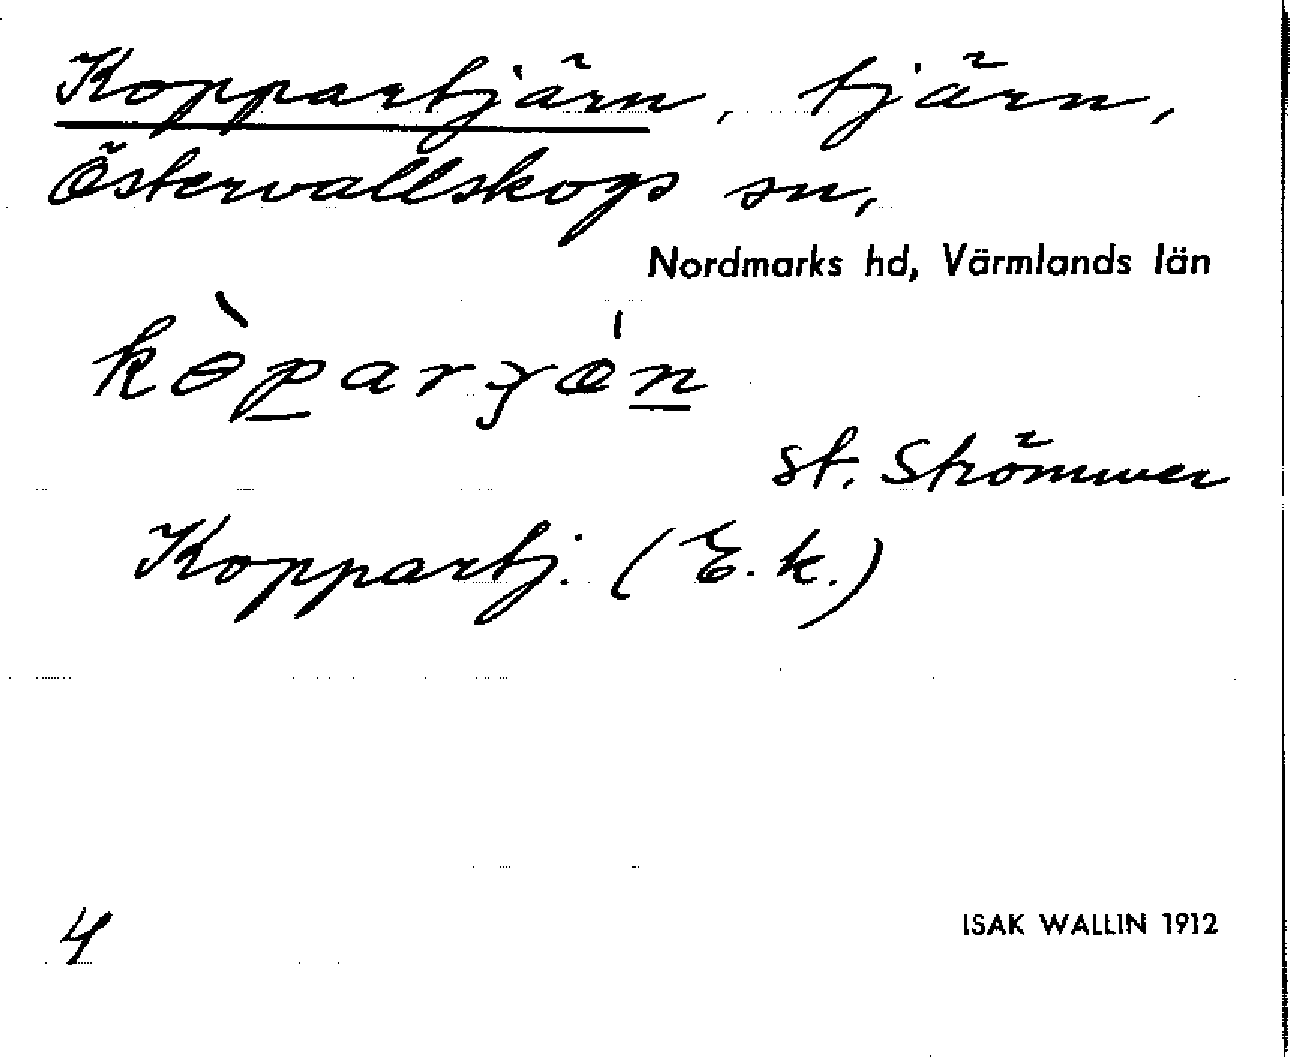 Koppartjärn, tjärn,
Östervallskogs sn,
Nordmarks hd, Värmlands län
st. Strömmer
Koppartj. (E.k.)
4
ISAK WALLIN 1912